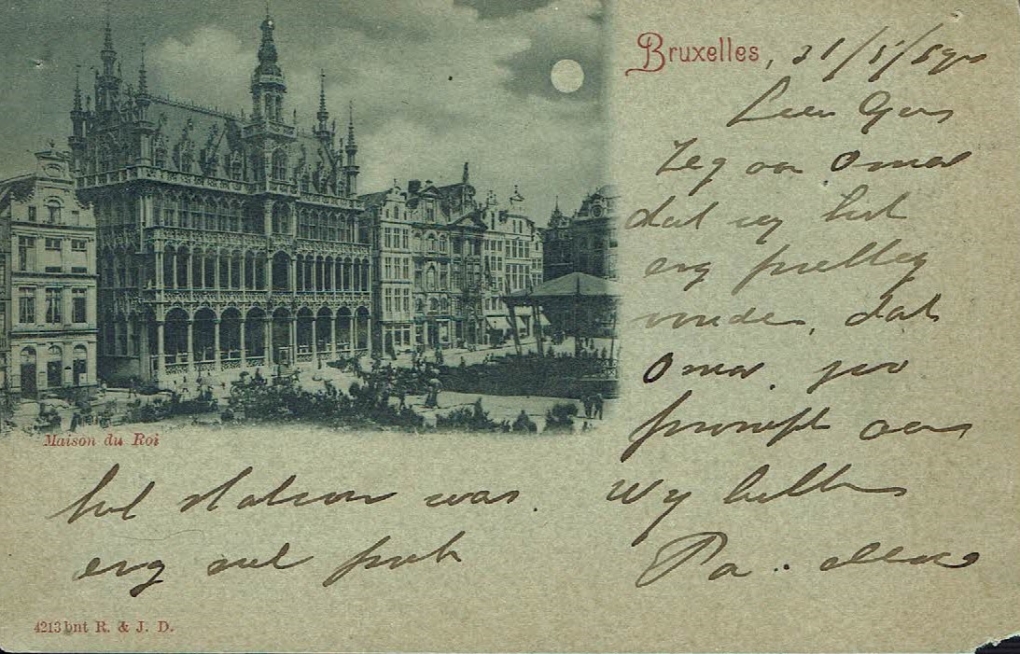 Bruxelles, 31/5/
Zeg aan Oma
dat wy het
erg prettig
vinden, dat
Oma zoo
prompt aan
het station was. Wy hebben
erg veel pret
Pa.
Maison du Roi
4213 bnt R. & J. D.